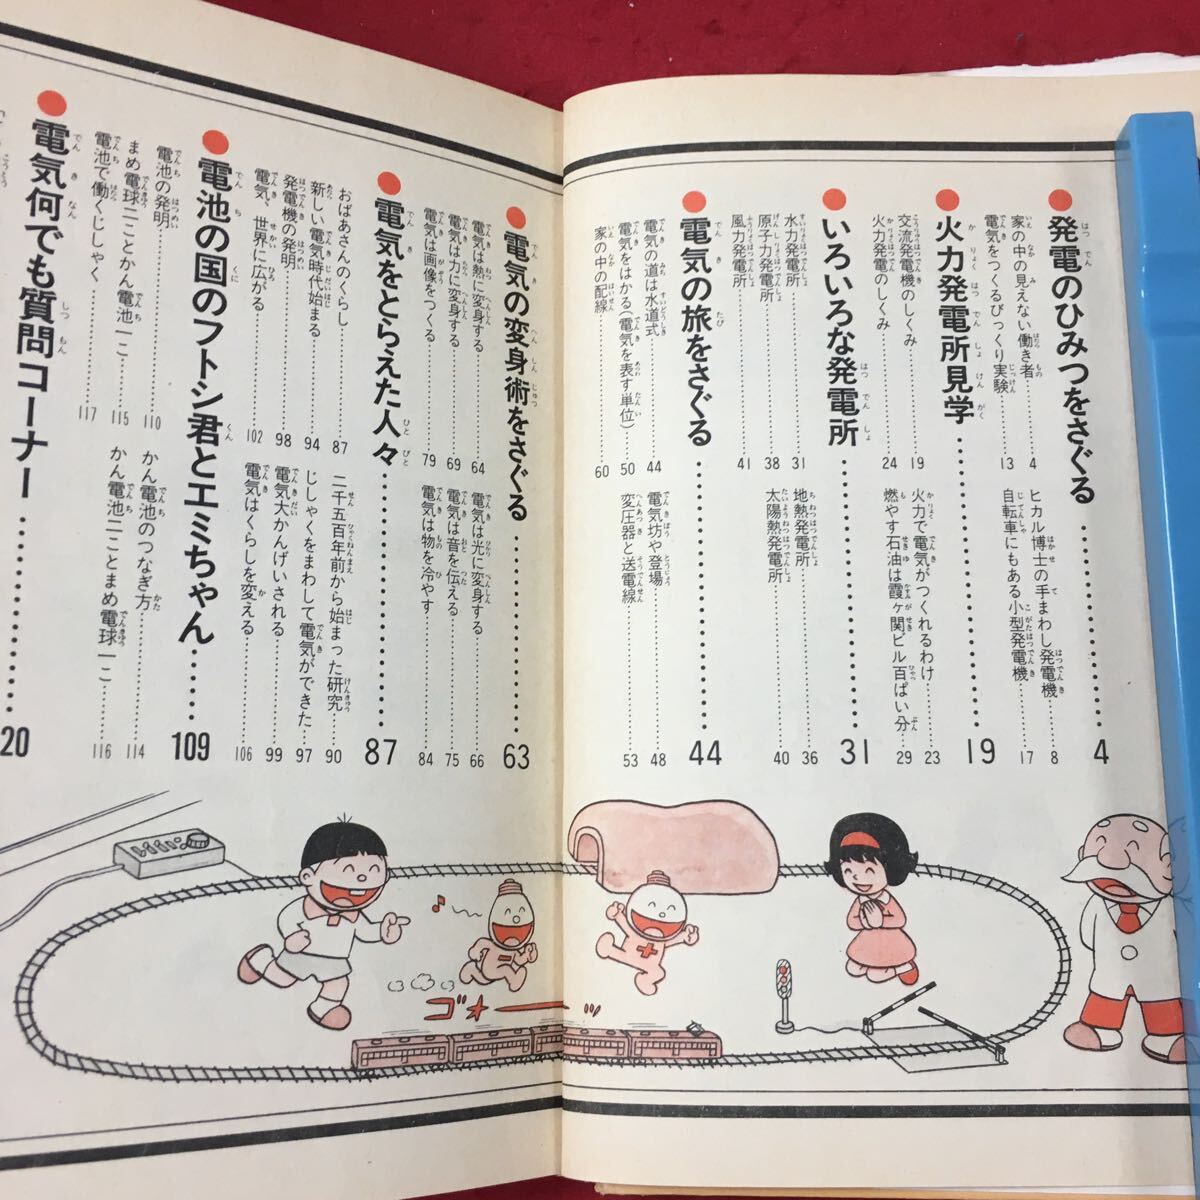 ●発電のひみつをさぐる……4
家の中の見えない働き者……4
ヒカル博士の手まわし発電機……8
電気をつくるびっくり実験……13
自転車にもある小型発電機……17
●火力発電所見学……19
交流発電機のしくみ……19
火力で電気がつくれるわけ……23
火力発電のしくみ……24
燃やす石油は霞ヶ関ビル百ぱい分……29
●いろいろな発電所……31
水力発電所……31
地熱発電所……36
原子力発電所……38
太陽熱発電所……40
風力発電所……41
●電気の旅をさぐる……44
電気の道は水道式……44
電気坊や登場……48
電気をはかる(電気を表す単位)……50
変圧器と送電線……53
家の中の配線……60
●電気の変身術をさぐる……63
電気は熱に変身する……64
電気は光に変身する……66
電気は力に変身する……69
電気は音を伝える……75
電気は画像をつくる……79
電気は物を冷やす……84
●電気をとらえた人々……87
おばあさんのくらし……87
二千五百年前から始まった研究……90
新しい電気時代始まる……94
じしゃくをまわして電気ができた……97
発電機の発明……98
電気大かんげいされる……99
電気、世界に広がる……102
電気はくらしを変える……106
●電池の国のフトシ君とエミちゃん……109
電池の発明……110
かん電池のつなぎ方……114
まめ電球二ことかん電池一こ……115
かん電池二ことまめ電球一こ……116
電池で働くじしゃく……117
●電気何でも質問コーナー……20
ゴォーーッ